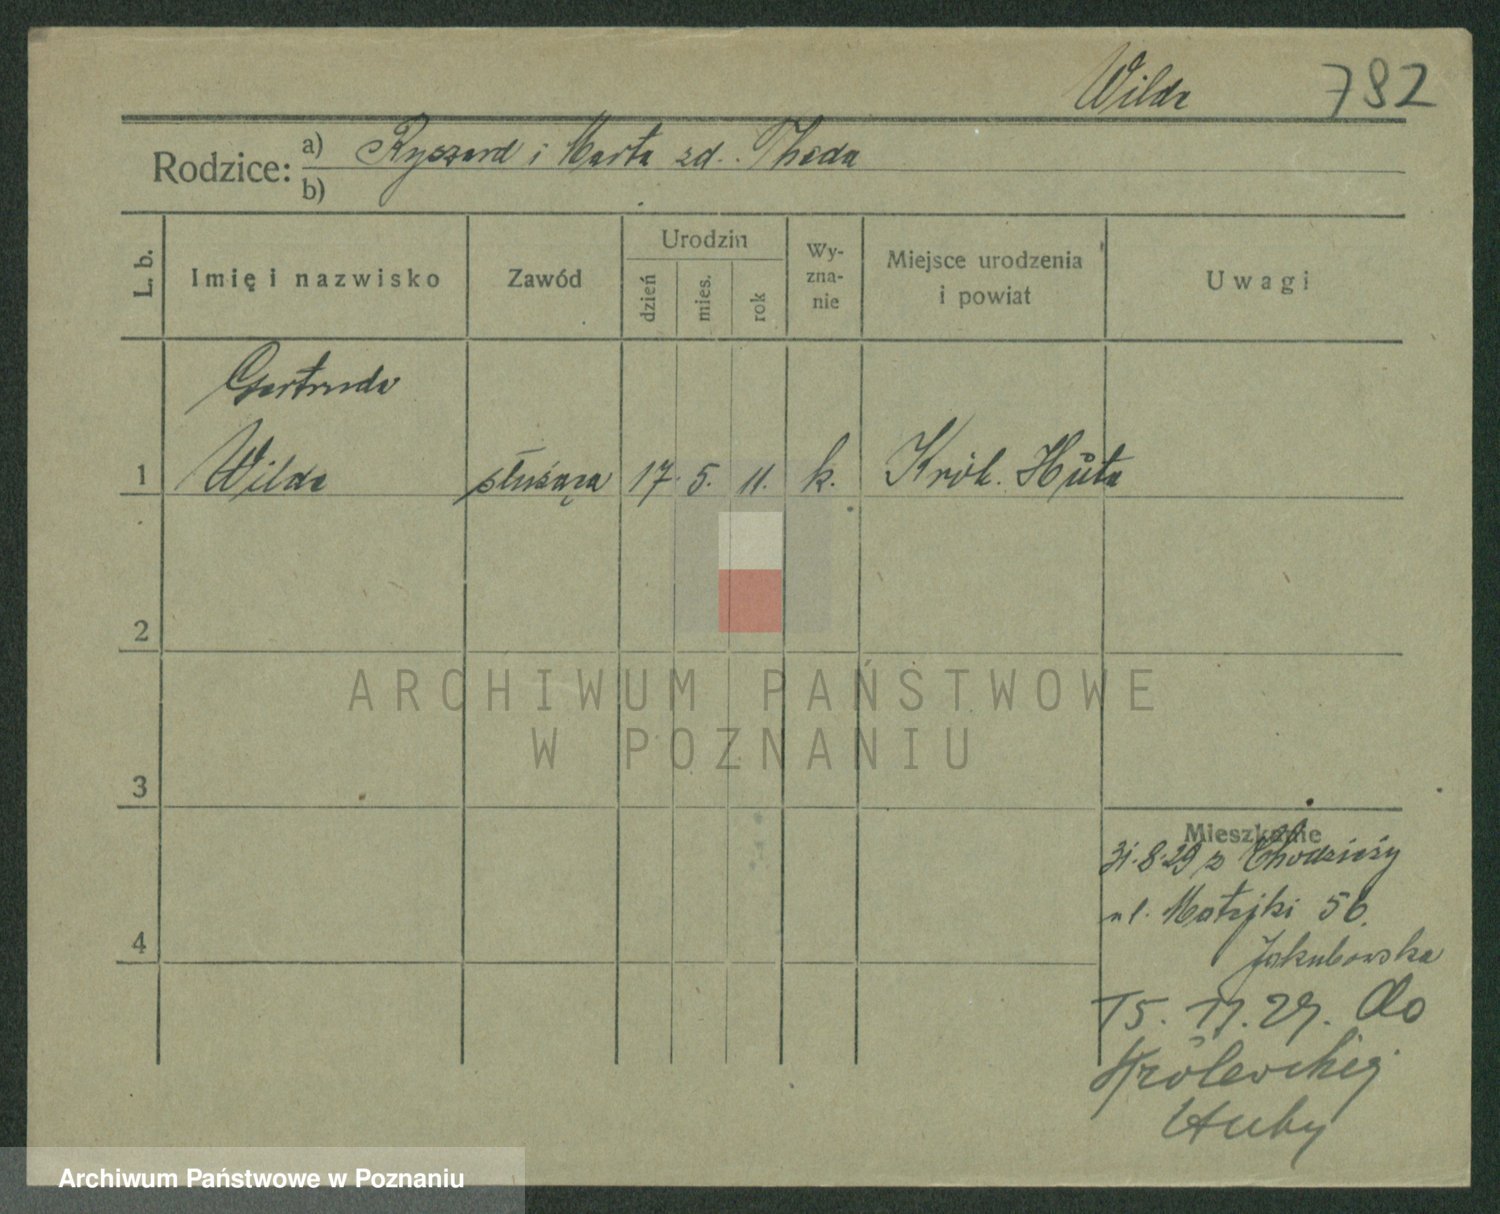 Wilde 782
Rodzice: a) Ryszard i Marta zd. Theda
b)
L. b. Imię i nazwisko Zawód Urodzin dzień mies. rok Wy-zna-nie Miejsce urodzenia i powiat Uwagi
Gertruda
1 Wilde służąca 17. 5. 11. k. Król. Huta
2
ARCHIWUM PAŃSTWOWE
W POZNANIU
3
Mieszkanie
31.8.29 z Chodzieży
ul. Matejki 56.
Jakubowska
4
15. 11. 29. do
Królewskiej
Huty
Archiwum Państwowe w Poznaniu